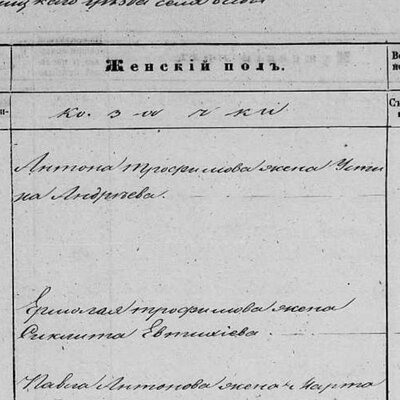 каго уѣзда села
Женскій полъ.
ко з а ч ки
Антона трофимова жена Усти
на Андрѣева.
Ермолая трофимова жена
Сиклита Евтихіева
Павла Антонова жена Марта